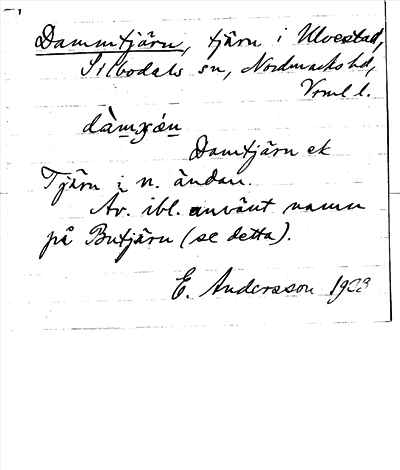 Dammtjärn, tjärn i Ulvestad,
Silbodals sn, Nordmarks hd,
Vrml l.
Damtjärn ek
Tjärn i n. ändan.
Av. ibl. använt namn
på Butjärn (se detta).
E. Andersson